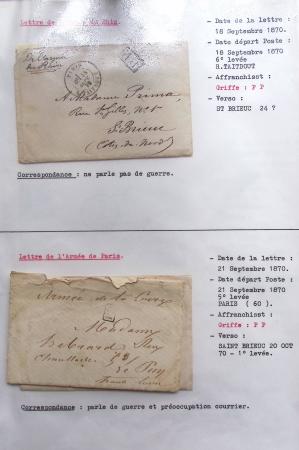 Lettre de l'Armée du Rhin.
- Date de la lettre :
18 Septembre 1870.
- Date départ Poste
18 Septembre 1870
6° levée
R.TAITBOUT
- Affranchisst :
Griffe : P P
- Verso :
ST BRIEUC 24 ?
A Madame Prima,
Rue St Gilles, N° 1
St Brieuc
(Côtes du Nord)
Correspondance : ne parle pas de guerre.
Lettre de l'Armée de Paris.
- Date de la lettre :
21 Septembre 1870.
- Date départ Poste :
21 Septembre 1870
5° levée
PARIS ( 60 ).
- Affranchisst :
Griffe : P P
- Verso :
SAINT BRIEUC 20 OCT
70 - 1° levée.
Armée de
Madame
Correspondance : parle de guerre et préoccupation courrier.